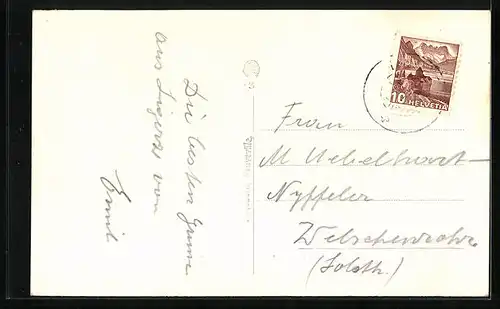 Die besten Grüsse
aus Ligerz von
Emil
10 HELVETIA
Frau
M. Uebelhart-
Nyffeler
Welschenrohr
(Soloth.)